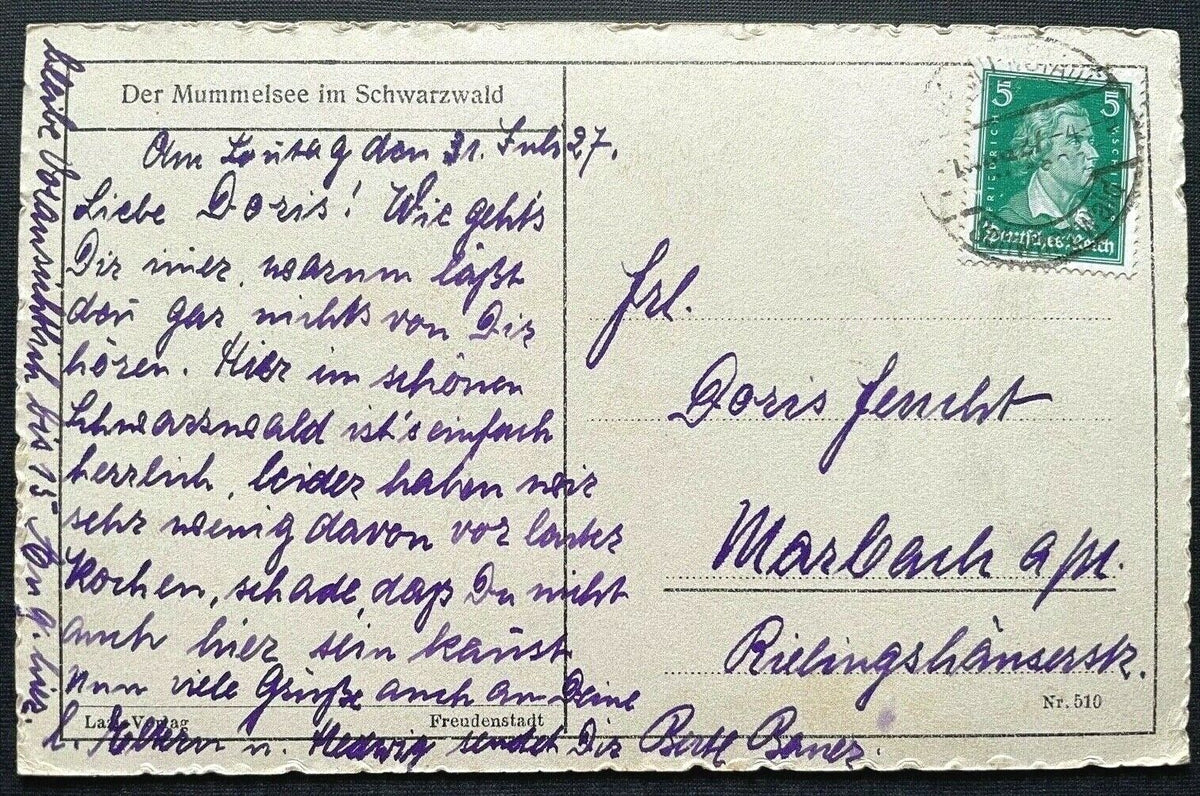 Der Mummelsee im Schwarzwald
Am Sontag den 31. Juli 27.
Liebe Doris! Wie geht's
Dir imer, warum läßt
den gar nichts von Dir
hören. Hier im schönen
Schwarzwald ist's einfach
herrlich, leider haben wir
sehr wenig davon vor lauter
Kochen, schade, daß Du nicht
auch hier sein kanst
Nun viele Grüße auch an Deine
l. Eltern u. Hedwig sendet Dir Bertl Bauer.
Bleibe voraussichtlich bis 15. Aug. hier.
Verlag Freudenstadt
5 5
FRIEDRICH V SCHILLER
Deutsches Reich
Frl.
Doris Feucht
Marbach a/N.
Rielingshäuserstr.
Nr. 510